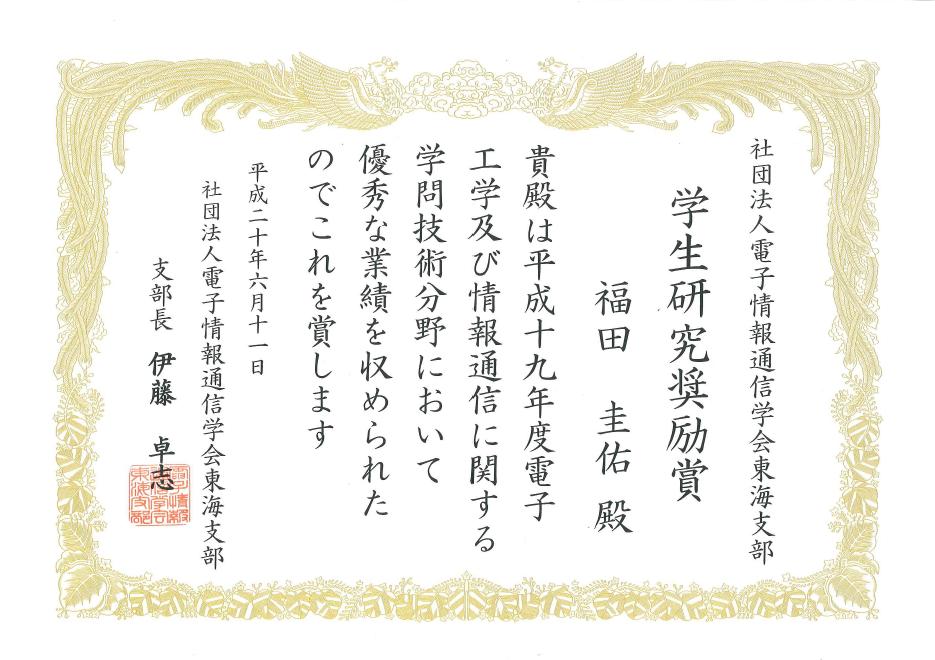 社団法人電子情報通信学会東海支部
学生研究奨励賞
福田 圭佑 殿
貴殿は平成十九年度電子
工学及び情報通信に関する
学問技術分野において
優秀な業績を収められた
のでこれを賞します
平成二十年六月十一日
社団法人電子情報通信学会東海支部
支部長 伊藤 卓志
電子情報
通信学会
東海支部